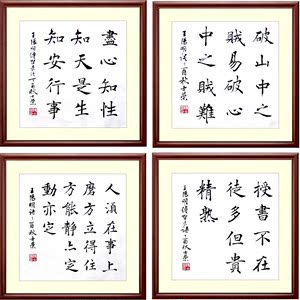 盡心知性
知天是生
知安行事
破山中之
賊易破心
中之賊難
王陽明語
人湏在事上
磨方立得住
方能静亦定
動亦定
王陽明語
授書不在
徒多但貴
精熟